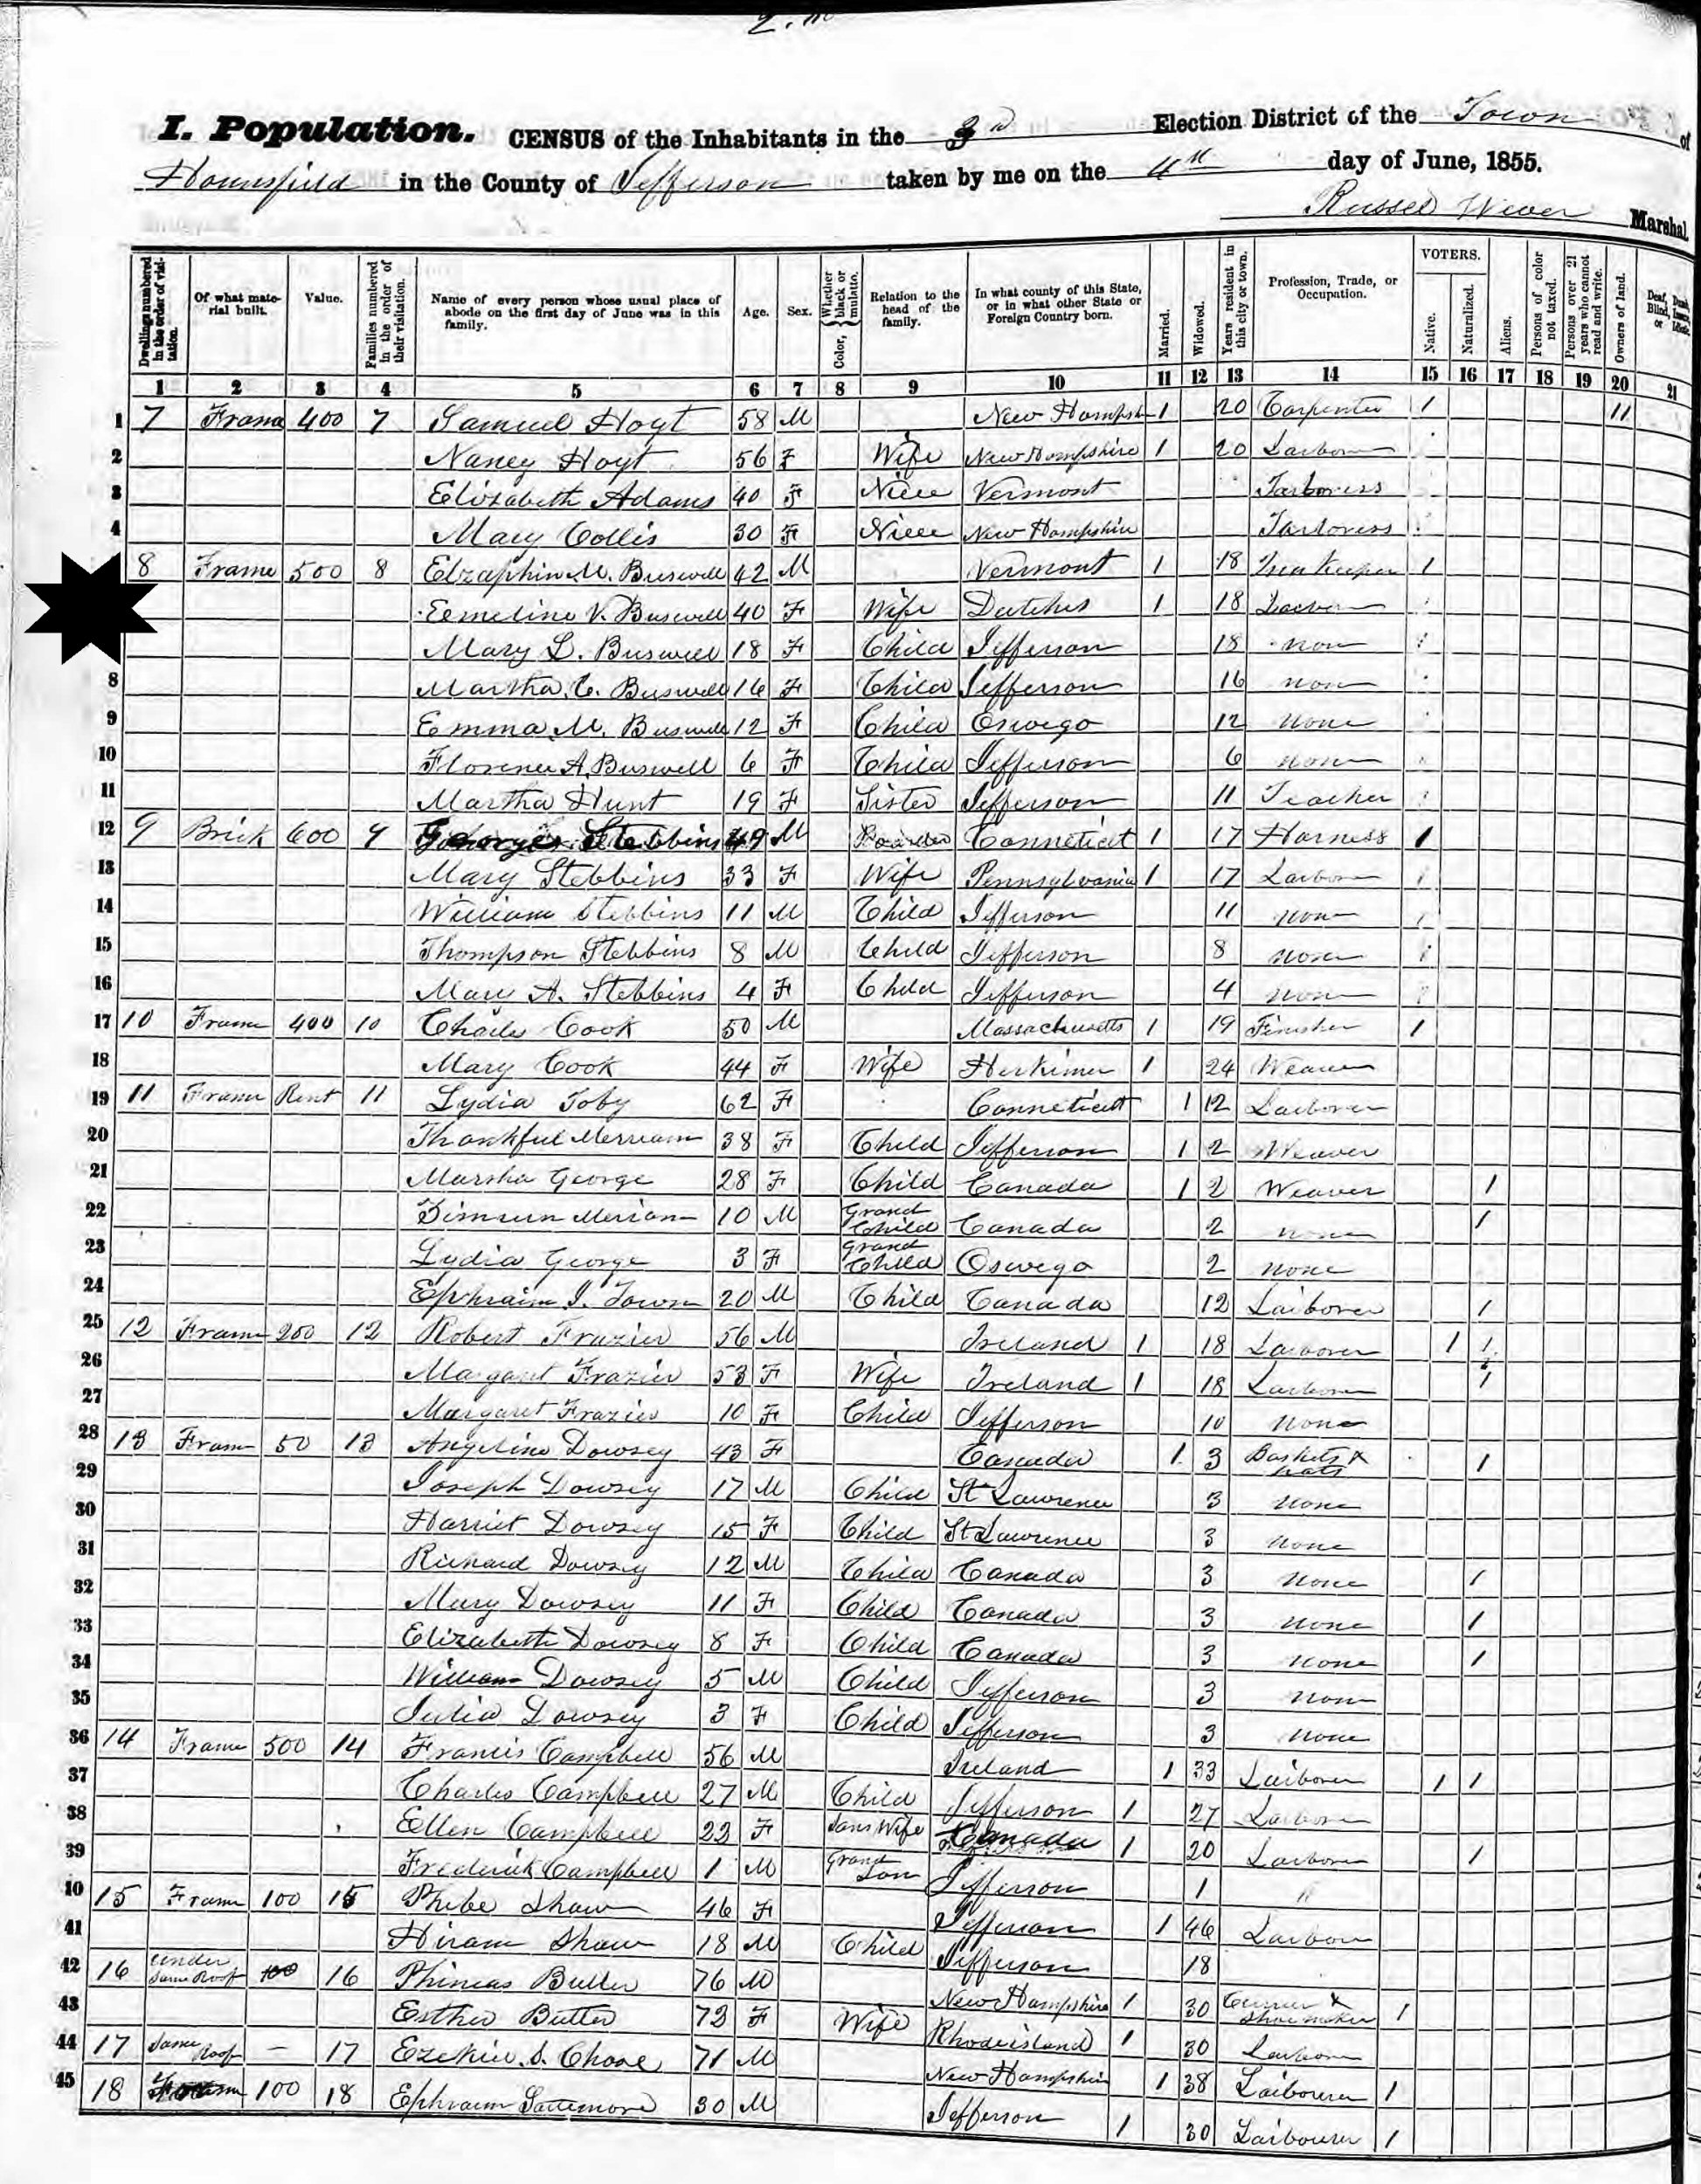 I. Population. CENSUS of the Inhabitants in the 3d Election District of the Town of
Hounsfield in the County of Jefferson taken by me on the 4th day of June, 1855.
Russel Wever Marshal.
Dwellings numbered in the order of visitation. Of what material built. Value. Families numbered in the order of their visitation. Name of every person whose usual place of abode on the first day of June was in this family. Age. Sex. Color, Whether black or mulatto. Relation to the head of the family. In what county of this State, or in what other State or Foreign Country born. Married. Widowed. Years resident in this city or town. Profession, Trade, or Occupation. VOTERS. Native. Naturalized. Aliens. Persons of color not taxed. Persons over 21 years who cannot read and write. Owners of land. Deaf, Dumb, Blind, or
1 2 3 4 5 6 7 8 9 10 11 12 13 14 15 16 17 18 19 20 21
1 7 Frame 400 7 Samuel Hoyt 58 M New Hampsh 1 20 Carpenter 1 11
2 Nancy Hoyt 56 F Wife New Hampshire 1 20 Larbor
3 Elizabeth Adams 40 F Niece Vermont
4 Mary Collis 30 F Niece New Hampshire
8 Frame 500 8 Elzaphin M. Buswell 42 M Vermont 1 18 Inn Keeper 1
Eemeline V. Buswell 40 F Wife Dutches 1 18
Mary L. Buswell 18 F Child Jefferson 18 non
8 Martha C. Buswell 16 F Child Jefferson 16 non
9 Emma M. Buswell 12 F Child Oswego 12 none
10 Florence A. Buswell 6 F Child Jefferson 6 none
11 Martha Hunt 19 F Sister Jefferson 11 Teacher
12 9 Brick 600 9 George Stebbins 49 M Boarder Conneticut 1 17 Harness 1
13 Mary Stebbins 33 F Wife Pennsylvania 1 17 Larbor
14 William Stebbins 11 M Child Jefferson 11 non
15 Thompson Stebbins 8 M Child Jefferson 8 none
16 Mary A. Stebbins 4 F Child Jefferson 4 non
17 10 Frame 400 10 Charles Cook 50 M Massachusetts 1 19 Finisher 1
18 Mary Cook 44 F Wife Herkimer 1 24 Weaver
19 11 Frame Rent 11 Lydia Toby 62 F Conneticut 1 12 Laiborer
20 Thankful Merriam 38 F Child Jefferson 1 2 Weaver
21 Marsha George 28 F Child Canada 1 2 Weaver 1
22 Merriam 10 M Grand Child Canada 2 none 1
23 Lydia George 3 F Grand Child Oswego 2 none
24 Ephraim I. Town 20 M Child Canada 12 Laiborer 1
25 12 Frame 200 12 Robert Frazier 56 M Ireland 1 18 Laiborer 1 1
26 Margaret Frazier 53 F Wife Ireland 1 18 Larborer 1
27 Margaret Frazier 10 F Child Jefferson 10 none
28 13 Fram 50 13 Angeline Dowsey 43 F Canada 1 3 Baskets & hats 1
29 Joseph Dowsey 17 M Child St Lawrence 3 none
30 Harriet Dowsey 15 F Child St Lawrence 3 none
31 Richard Dowsey 12 M Child Canada 3 none 1
32 Mary Dowsey 11 F Child Canada 3 none 1
33 Elizabeth Dowsey 8 F Child Canada 3 none 1
34 William Dowsey 5 M Child Jefferson 3 non
35 Julia Dowsey 3 F Child Jefferson 3 none
36 14 Frame 500 14 Francis Campbell 56 M Ireland 1 33 Laiborer 1 1
37 Charles Campbell 27 M Child Jefferson 1 27 Laiborer
38 Ellen Campbell 23 F Sons Wife Canada 1 20 Larborer 1
39 Frederick Campbell 1 M Grand Son Jefferson 1
10 15 Frame 100 15 Phebe Shaw 46 F Jefferson 1 46 Laibor
41 Hiram Shaw 18 M Child Jefferson 18
42 16 Under Same Roof 100 16 Phineas Butler 76 M New Hampshire 1 30 Currier & Shoemaker 1
43 Esther Butler 73 F Wife Rhodeisland 1 30 Larborer
44 17 Same Roof — 17 Ezekiel S. Chase 71 M New Hampshire 1 38 Laibourer 1
45 18 Fram 100 18 Ephraim 30 M Jefferson 1 30 Laibourer 1